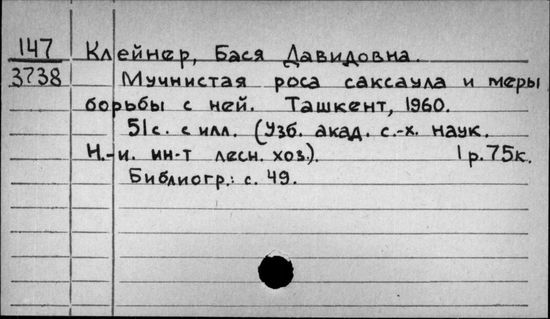 147 Клейнер, Бася Давидовна.
3738 Мучнистая роса саксаула и меры
борьбы с ней. Ташкент, 1960.
51с. с илл. (Узб. акад. с.-х. наук.
Н.-и. ин-т лесн. хоз.). 1 р. 75к.
Библиогр.: с. 49.